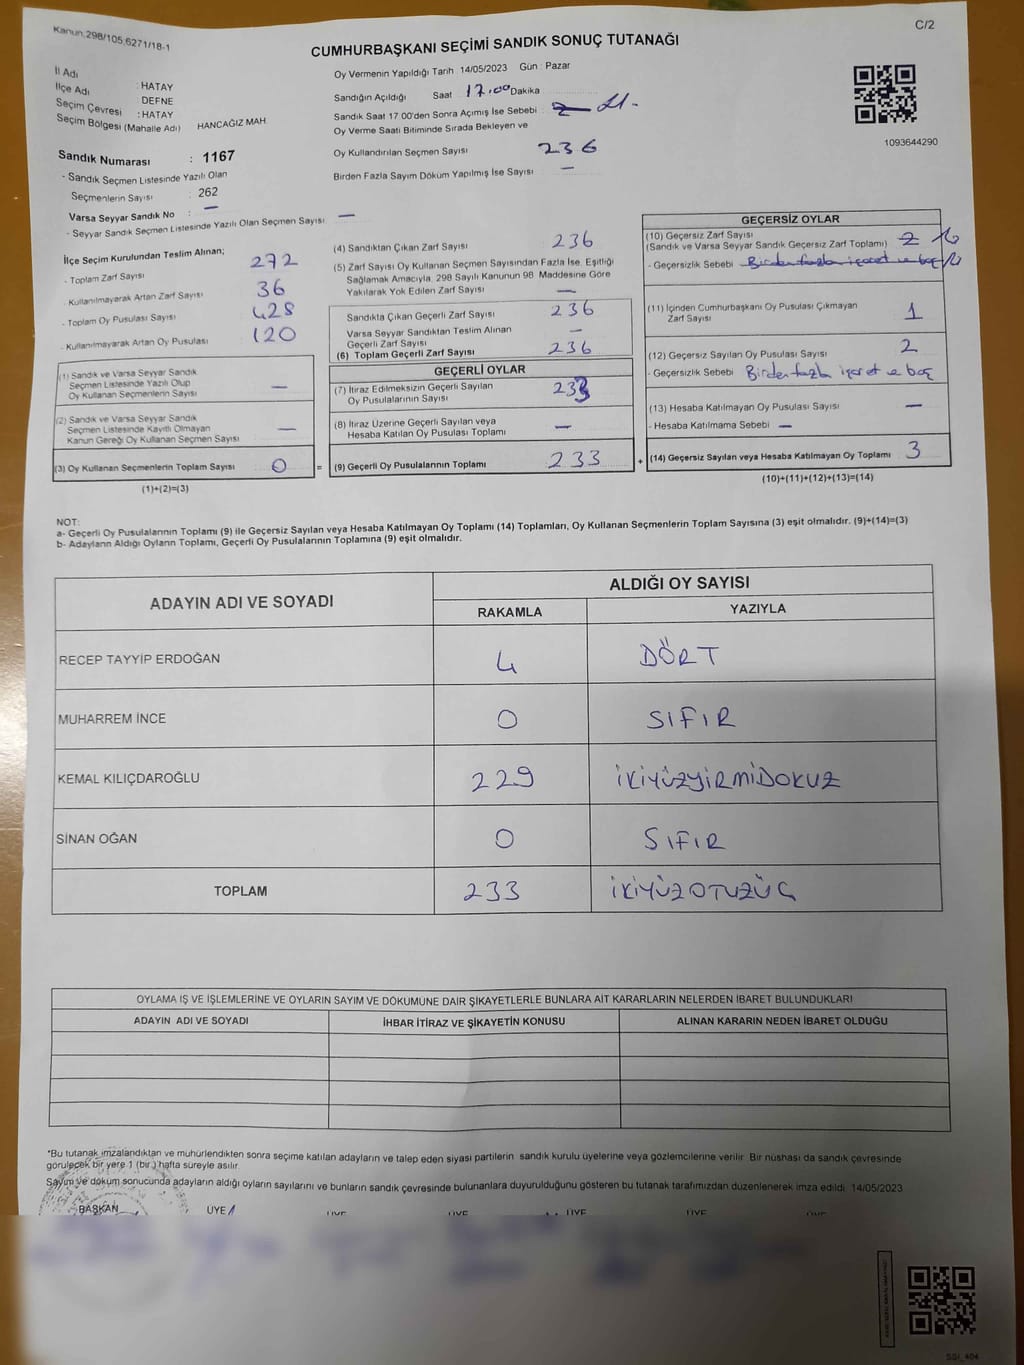 Kanun 298/105 6271/18-1
C/2
CUMHURBAŞKANI SEÇİMİ SANDIK SONUÇ TUTANAĞI
İl Adı : HATAY
İlçe Adı : DEFNE
Seçim Çevresi : HATAY
Seçim Bölgesi (Mahalle Adı) HANCAĞIZ MAH.
Sandık Numarası : 1167
- Sandık Seçmen Listesinde Yazılı Olan
Seçmenlerin Sayısı : 262
Varsa Seyyar Sandık No : —
- Seyyar Sandık Seçmen Listesinde Yazılı Olan Seçmen Sayısı —
Oy Vermenin Yapıldığı Tarih : 14/05/2023 Gün : Pazar
Sandığın Açıldığı Saat 17.00 Dakika
Sandık Saat 17.00'den Sonra Açımış İse Sebebi :
Oy Verme Saati Bitiminde Sırada Bekleyen ve
Oy Kullandırılan Seçmen Sayısı 236
Birden Fazla Sayım Döküm Yapılmış İse Sayısı —
1093644290
İlçe Seçim Kurulundan Teslim Alınan;
- Toplam Zarf Sayısı 272
- Kullanılmayarak Artan Zarf Sayısı 36
- Toplam Oy Pusulası Sayısı 428
- Kullanılmayarak Artan Oy Pusulası 120
(1) Sandık ve Varsa Seyyar Sandık
Seçmen Listesinde Yazılı Olup
Oy Kullanan Seçmenlerin Sayısı —
(2) Sandık ve Varsa Seyyar Sandık
Seçmen Listesinde Kayıtlı Olmayan
Kanun Gereği Oy Kullanan Seçmen Sayısı —
(3) Oy Kullanan Seçmenlerin Toplam Sayısı 0 =
(1)+(2)=(3)
(4) Sandıktan Çıkan Zarf Sayısı 236
(5) Zarf Sayısı Oy Kullanan Seçmen Sayısından Fazla İse, Eşitliği
Sağlamak Amacıyla, 298 Sayılı Kanunun 98. Maddesine Göre
Yakılarak Yok Edilen Zarf Sayısı —
Sandıkta Çıkan Geçerli Zarf Sayısı 236
Varsa Seyyar Sandıktan Teslim Alınan
Geçerli Zarf Sayısı —
(6) Toplam Geçerli Zarf Sayısı 236
GEÇERLİ OYLAR
(7) İtiraz Edilmeksizin Geçerli Sayılan
Oy Pusulalarının Sayısı 233
(8) İtiraz Üzerine Geçerli Sayılan veya
Hesaba Katılan Oy Pusulası Toplamı —
(9) Geçerli Oy Pusulalarının Toplamı 233 +
GEÇERSİZ OYLAR
(10) Geçersiz Zarf Sayısı
(Sandık ve Varsa Seyyar Sandık Geçersiz Zarf Toplamı) 2
- Geçersizlik Sebebi Birden fazla işaret ve boş
(11) İçinden Cumhurbaşkanı Oy Pusulası Çıkmayan
Zarf Sayısı 1
(12) Geçersiz Sayılan Oy Pusulası Sayısı 2
- Geçersizlik Sebebi Birden fazla işaret ve boş
(13) Hesaba Katılmayan Oy Pusulası Sayısı —
- Hesaba Katılmama Sebebi —
(14) Geçersiz Sayılan veya Hesaba Katılmayan Oy Toplamı 3
(10)+(11)+(12)+(13)=(14)
NOT:
a- Geçerli Oy Pusulalarının Toplamı (9) ile Geçersiz Sayılan veya Hesaba Katılmayan Oy Toplamı (14) Toplamları, Oy Kullanan Seçmenlerin Toplam Sayısına (3) eşit olmalıdır. (9)+(14)=(3)
b- Adayların Aldığı Oyların Toplamı, Geçerli Oy Pusulalarının Toplamına (9) eşit olmalıdır.
ADAYIN ADI VE SOYADI
ALDIĞI OY SAYISI
RAKAMLA YAZIYLA
RECEP TAYYİP ERDOĞAN 4 DÖRT
MUHARREM İNCE 0 SIFIR
KEMAL KILIÇDAROĞLU 229 İKİYÜZYİRMİDOKUZ
SİNAN OĞAN 0 SIFIR
TOPLAM 233 İKİYÜZOTUZÜÇ
OYLAMA İŞ VE İŞLEMLERİNE VE OYLARIN SAYIM VE DÖKÜMÜNE DAİR ŞİKAYETLERLE BUNLARA AİT KARARLARIN NELERDEN İBARET BULUNDUKLARI
ADAYIN ADI VE SOYADI İHBAR İTİRAZ VE ŞİKAYETİN KONUSU ALINAN KARARIN NEDEN İBARET OLDUĞU
*Bu tutanak imzalandıktan ve mühürlendikten sonra seçime katılan adayların ve talep eden siyasi partilerin sandık kurulu üyelerine veya gözlemcilerine verilir. Bir nüshası da sandık çevresinde
görülecek bir yere 1 (bir) hafta süreyle asılır.
Sayım ve döküm sonucunda adayların aldığı oyların sayılarını ve bunların sandık çevresinde bulunanlara duyurulduğunu gösteren bu tutanak tarafımızdan düzenlenerek imza edildi. 14/05/2023
BAŞKAN ÜYE ÜYE ÜYE ÜYE ÜYE ÜYE